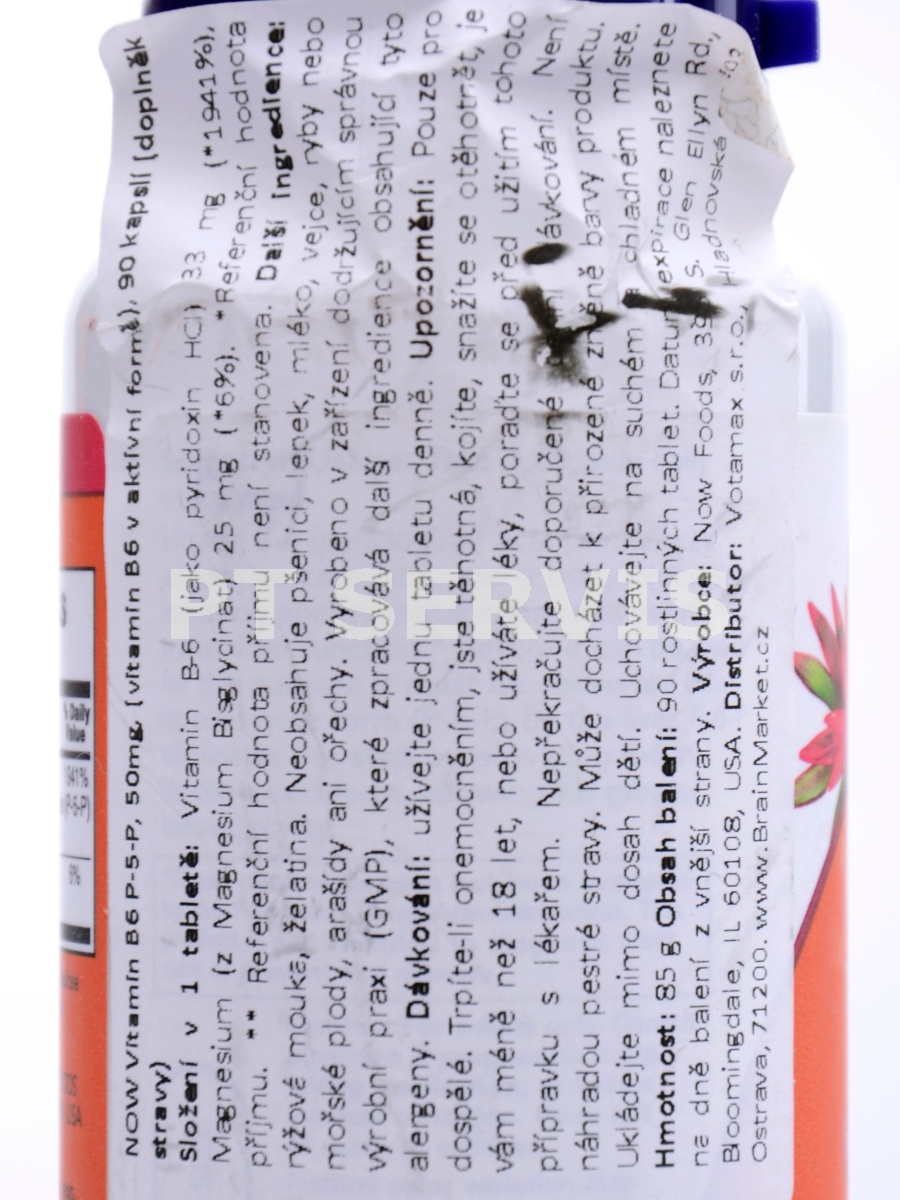 NOW Vitamín B6 P-5-P, 50mg, (vitamín B6 v aktivní formě), 90 kapslí (doplněk
stravy)
Složení v 1 tabletě: Vitamín B-6 (jako pyridoxin HCl) 33 mg (*1941%),
Magnesium (z Magnesium Bisglycinát) 25 mg (*6%). *Referenční hodnota
příjmu. ** Referenční hodnota příjmu není stanovena. Další ingredience:
rýžová mouka, želatina. Neobsahuje pšenici, lepek, mléko, vejce, ryby nebo
mořské plody, arašídy ani ořechy. Vyrobeno v zařízení dodržujícím správnou
výrobní praxi (GMP), které zpracovává další ingredience obsahující tyto
alergeny. Dávkování: užívejte jednu tabletu denně. Upozornění: Pouze pro
dospělé. Trpíte-li onemocněním, jste těhotná, kojíte, snažíte se otěhotnět, je
vám méně než 18 let, nebo užíváte léky, poraďte se před užitím tohoto
přípravku s lékařem. Nepřekračujte doporučené dávkování. Není
náhradou pestré stravy. Může docházet k přirozené změně barvy produktu.
Ukládejte mimo dosah dětí. Uchovávejte na suchém chladném místě.
Hmotnost: 85 g Obsah balení: 90 rostlinných tablet. Datum exPirace naleznete
na dně balení z vnější strany. Výrobce: Now Foods, S. Glen Ellyn Rd.,
Bloomingdale, IL 60108, USA. Distributor: Votamax s.r.o., Hladnovské
Ostrava, 71200. www.BrainMarket.cz
PT SERVIS
% Daily
Value
1941%
(P-5-P)
6%